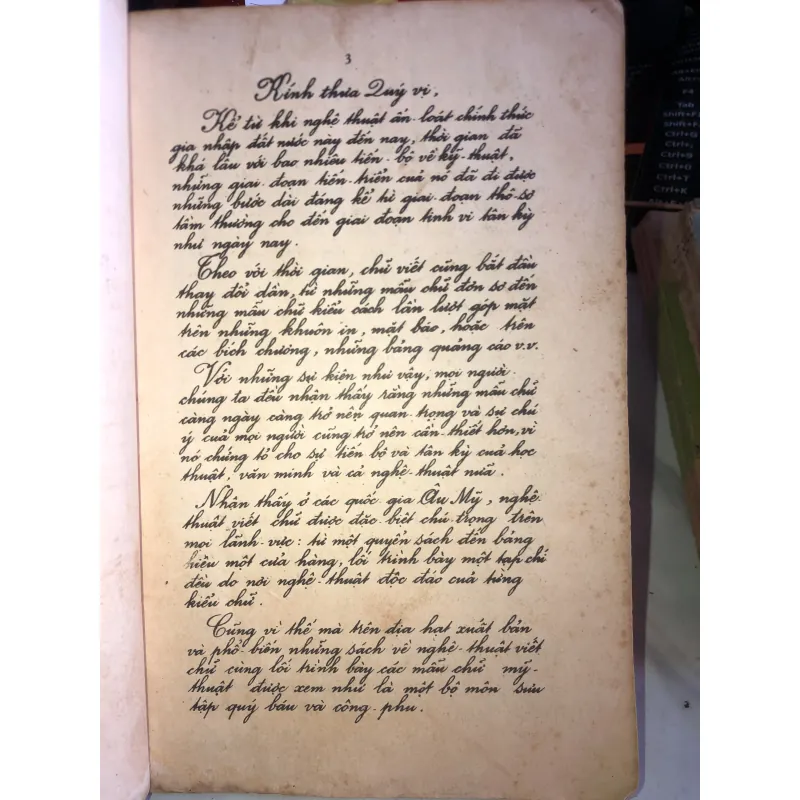 3
Kính thưa Quý vị,
Kể từ khi nghệ thuật ấn-loát chính thức
gia nhập đất nước này đến nay, thời gian đã
khá lâu với bao nhiêu tiến-bộ về kỹ-thuật,
những giai-đoạn tiến-triển của nó đã đi được
những bước dài đáng kể từ giai-đoạn thô-sơ
tầm thường cho đến giai đoạn tinh vi tân kỳ
như ngày nay.
Theo với thời gian, chữ viết cũng bắt đầu
thay đổi dần, từ những mẫu chữ đơn sơ đến
những mẫu chữ kiểu cách lần lượt góp mặt
trên những khuôn in, mặt báo, hoặc trên
các bích chương, những bảng quảng cáo v.v.
Với những sự kiện như vậy, mọi người
chúng ta đều nhận thấy rằng những mẫu chữ
càng ngày càng trở nên quan-trọng và sự chú
ý của mọi người cũng trở nên cần-thiết hơn, vì
nó chứng tỏ cho sự tiến bộ và tân kỳ của học
thuật, văn minh và cả nghệ-thuật nữa.
Nhận thấy ở các quốc gia Âu Mỹ, nghệ-
thuật viết chữ được đặc biệt chú-trọng trên
mọi lãnh-vực: từ một quyển sách đến bảng
hiệu một cửa hàng, lối trình bày một tạp chí
đều do nơi nghệ-thuật độc đáo của từng
kiểu chữ.
Cũng vì thế mà trên địa hạt xuất bản
và phổ-biến những sách về nghệ-thuật viết
chữ cùng lối trình bày các mẫu chữ mỹ-
thuật được xem như là một bộ môn sưu
tập quý báu và công-phu.
Tab